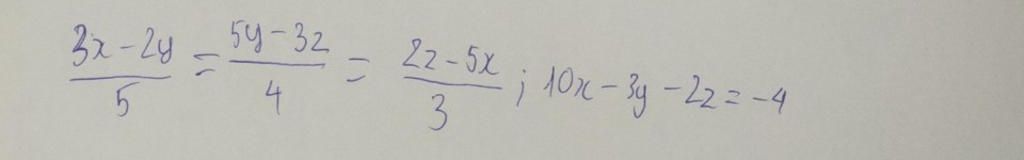 (3x-2y)/5 = (5y-3z)/4 = (2z-5x)/3 ; 10x-3y-2z=-4